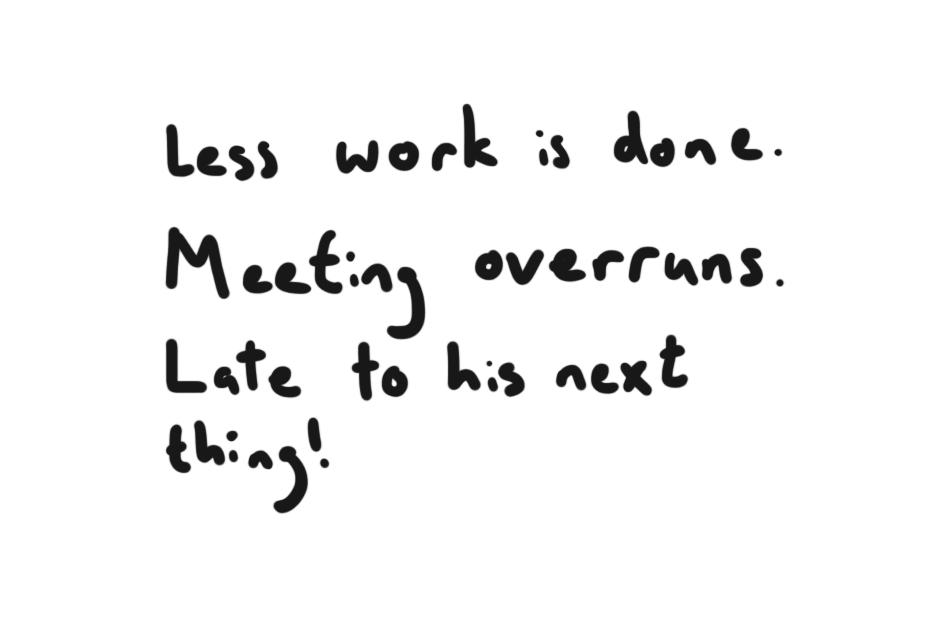 Less work is done.
Meeting overruns.
Late to his next
thing!